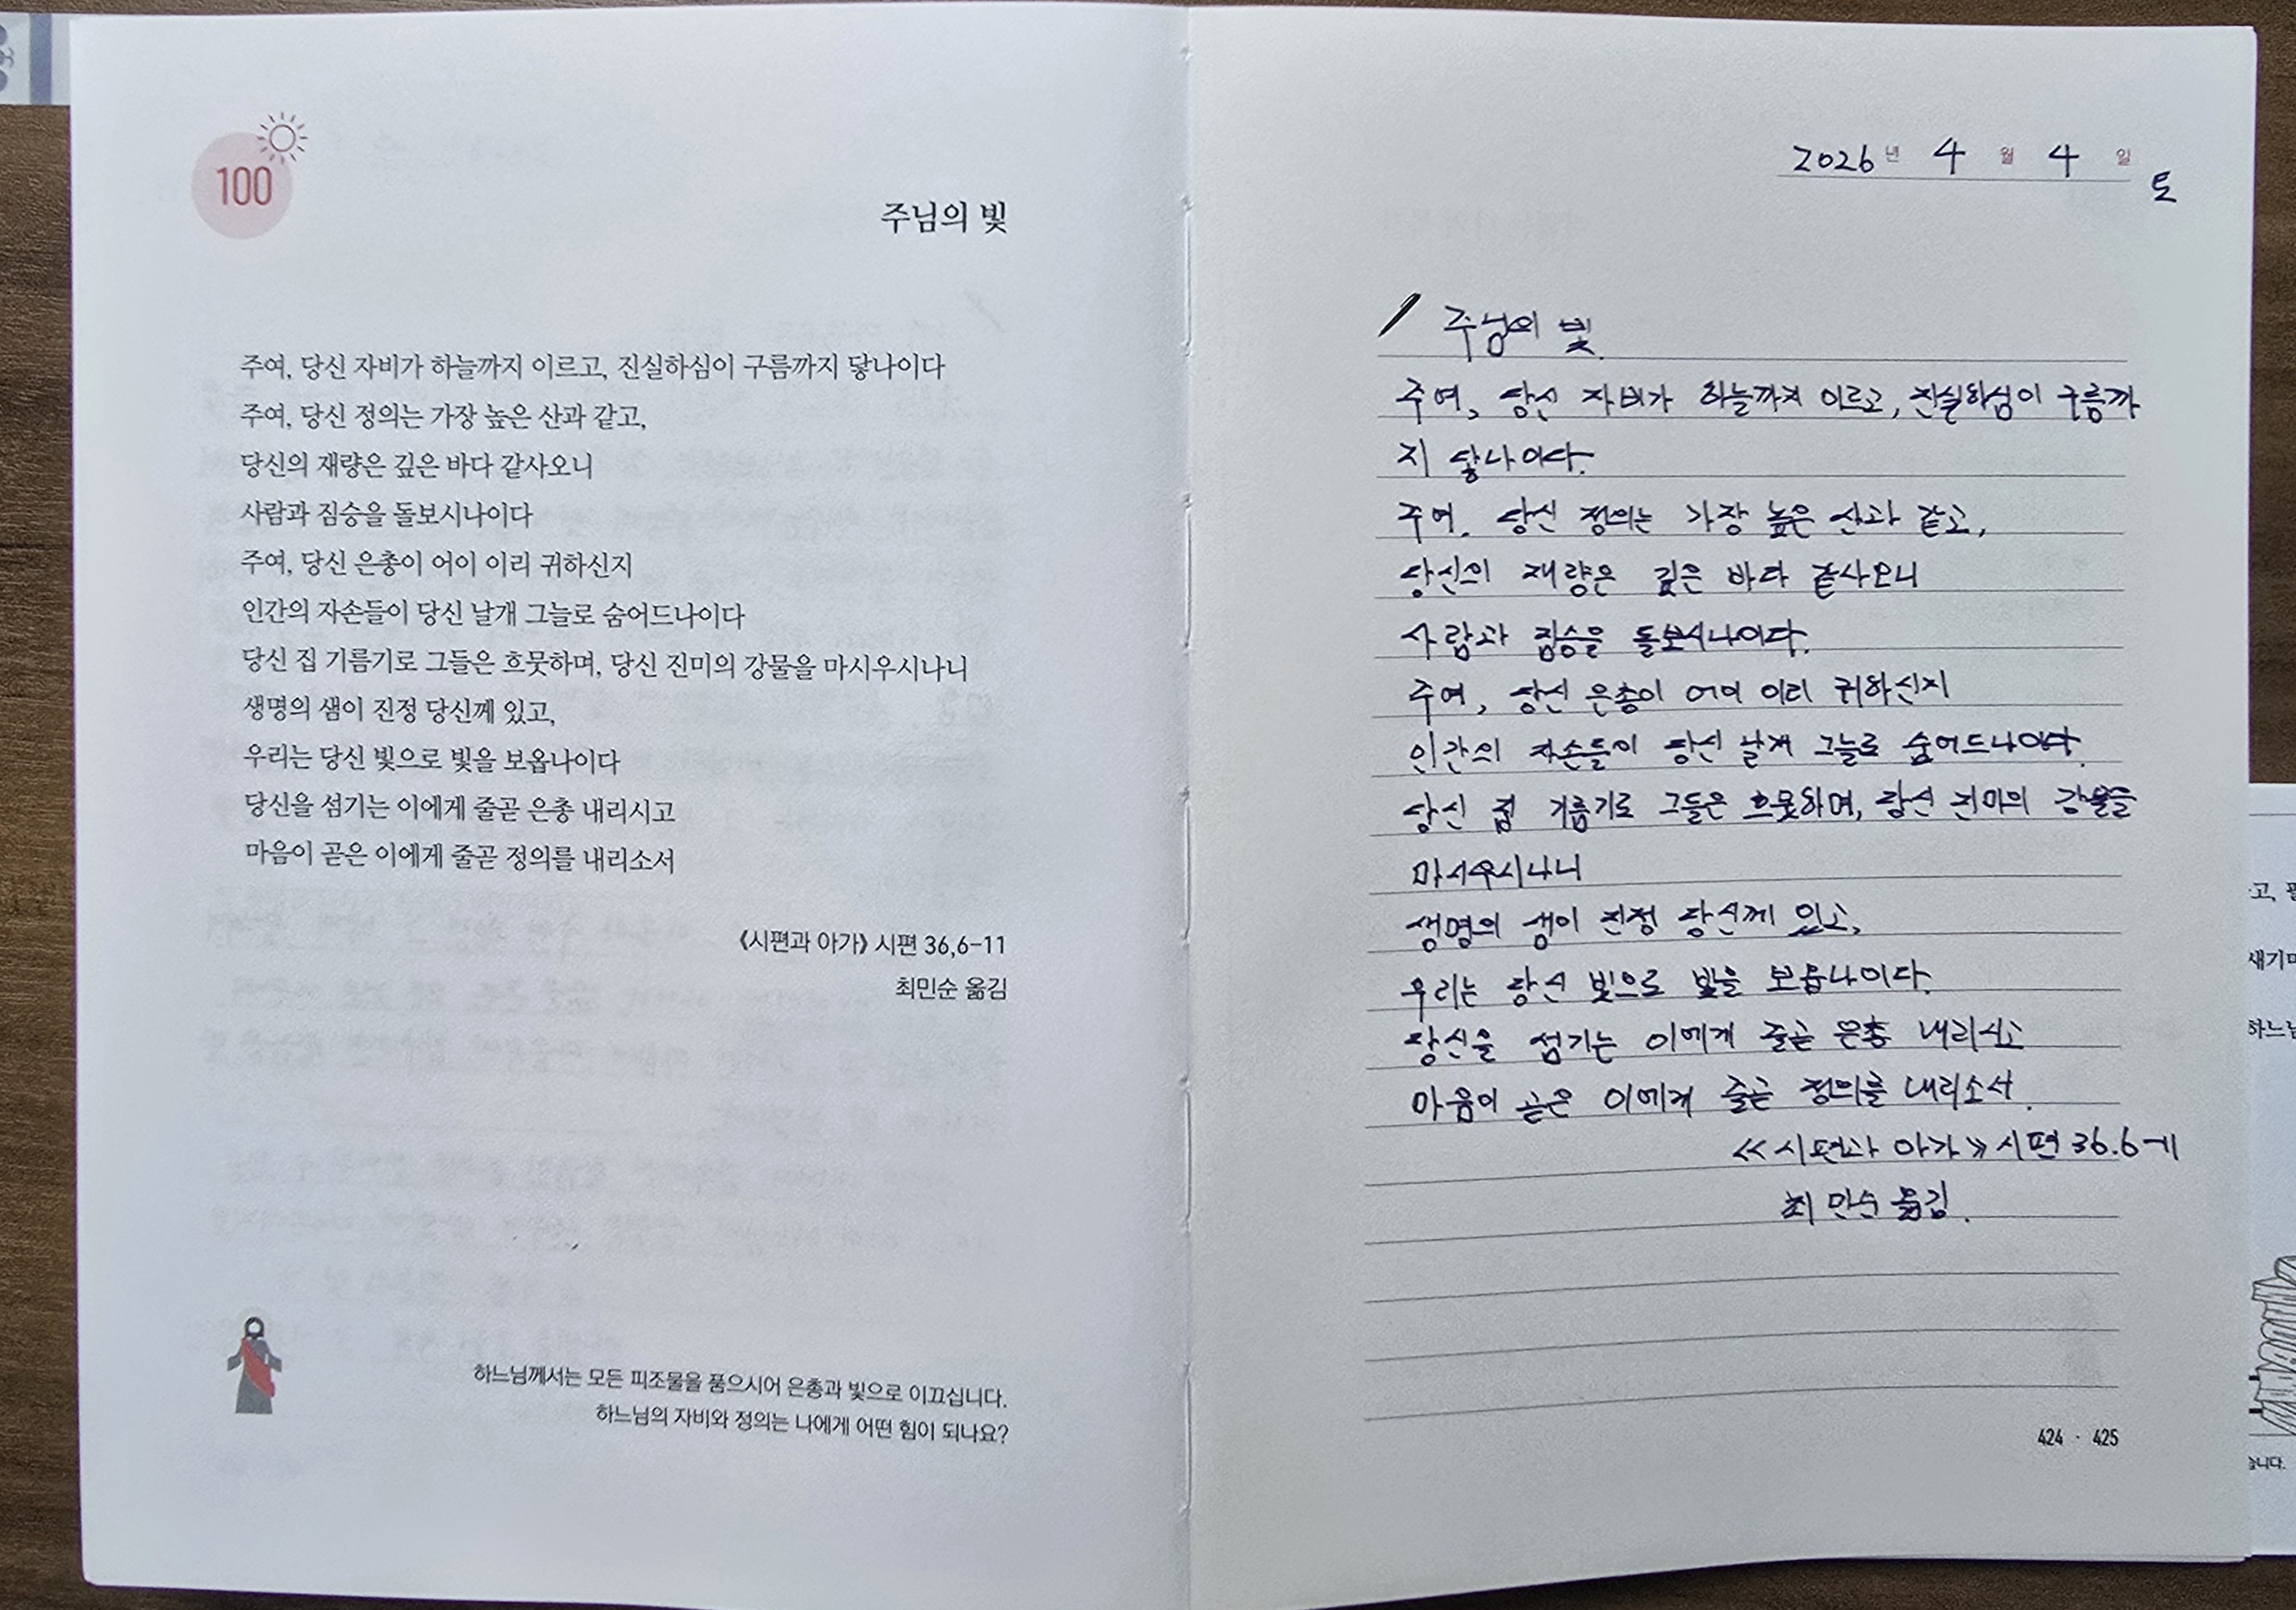 100
주님의 빛
주여, 당신 자비가 하늘까지 이르고, 진실하심이 구름까지 닿나이다
주여, 당신 정의는 가장 높은 산과 같고,
당신의 재량은 깊은 바다 같사오니
사람과 짐승을 돌보시나이다
주여, 당신 은총이 어이 이리 귀하신지
인간의 자손들이 당신 날개 그늘로 숨어드나이다
당신 집 기름기로 그들은 흐뭇하며, 당신 진미의 강물을 마시우시나니
생명의 샘이 진정 당신께 있고,
우리는 당신 빛으로 빛을 보옵나이다
당신을 섬기는 이에게 줄곧 은총 내리시고
마음이 곧은 이에게 줄곧 정의를 내리소서
《시편과 아가》 시편 36,6-11
최민순 옮김
하느님께서는 모든 피조물을 품으시어 은총과 빛으로 이끄십니다.
하느님의 자비와 정의는 나에게 어떤 힘이 되나요?
2026년 4월 4일
토
주님의 빛.
주여, 당신 자비가 하늘까지 이르고, 진실하심이 구름까
지 닿나이다.
주여. 당신 정의는 가장 높은 산과 같고,
당신의 재량은 깊은 바다 같사오니
사람과 짐승을 돌보시나이다.
주여, 당신 은총이 어이 이리 귀하신지
인간의 자손들이 당신 날개 그늘로 숨어드나이다.
당신 집 기름기로 그들은 흐뭇하며, 당신 진미의 강물을
마시우시나니
생명의 샘이 진정 당신께 있고,
우리는 당신 빛으로 빛을 보옵나이다.
당신을 섬기는 이에게 줄곧 은총 내리시고
마음이 곧은 이에게 줄곧 정의를 내리소서.
≪시편과 아가≫ 시편 36.6-11
최민순 옮김.
424 · 425
고,
새기며
하느님
습니다.